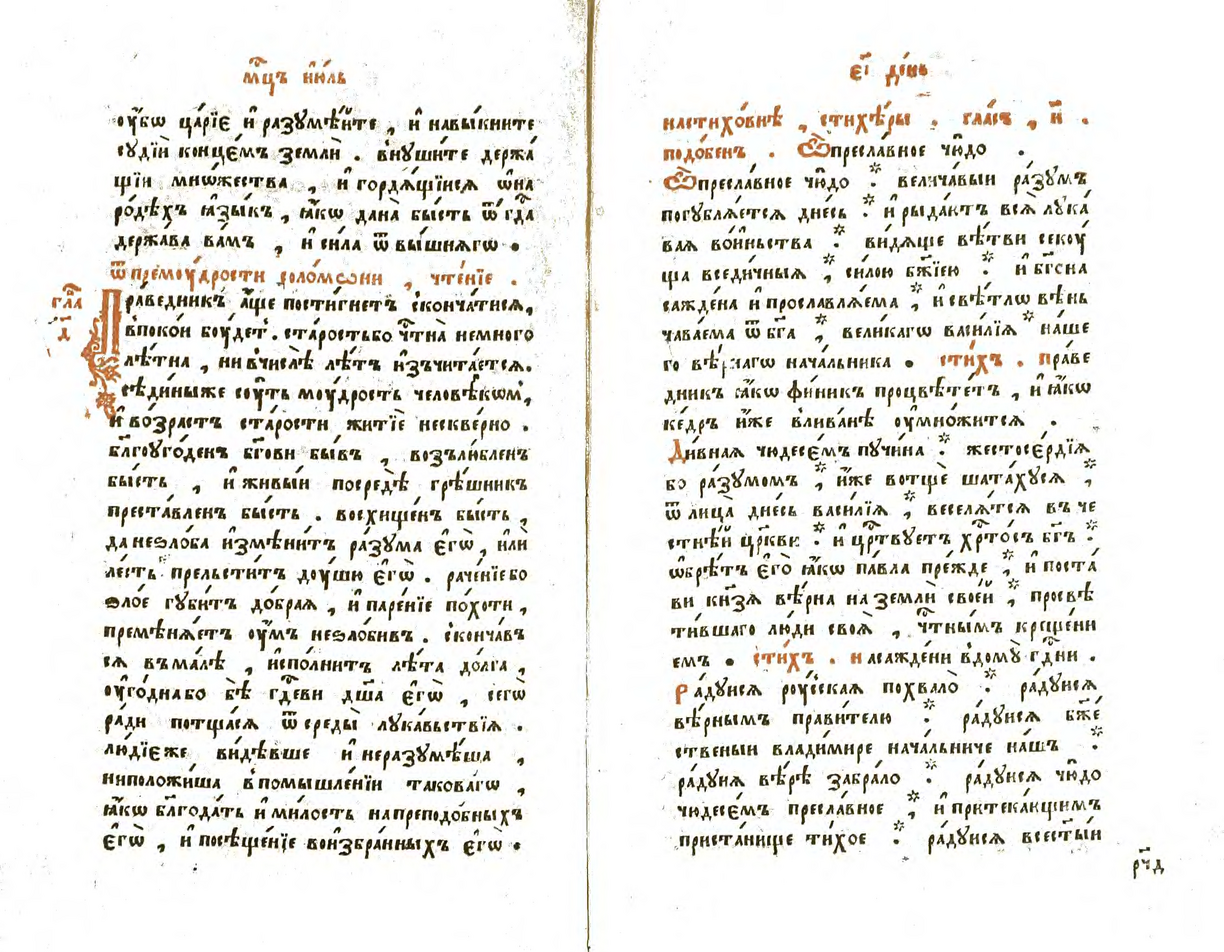 мⷭ҇цъ ию́ль
оу҆́бѡ ца́рїє и҆ разꙋмѣ́йте , и҆ навы́кните
сꙋдїи́ конце́мъ землѝ . внꙋши́те держа́
щїи мнѡ́жества , и҆ гордѧ́щїисѧ ѡ҆ на
ро́дѣхъ ꙗ҆зы́къ , ꙗ҆́кѡ дана̀ бы́сть ѿ гдⷭ҇а
держа́ва ва́мъ , и҆ си́ла ѿ вы́шнѧгѡ .
ѿ премоу́дрости соломѡни , чте́нїе .
гла
д҃
Пра́ведникъ а҆́ще пости́гнетъ сконча́тисѧ,
впоко́и боу́детъ . ста́рость бо чⷭ҇тна̀ немного
лѣ́тна , ни в числѣ̀ лѣ́тъ и҆зъчита́етсѧ.
сѣди́ны же соу́ть моу́дрость человѣ́кѡм,
и҆ во́зрастъ ста́рости житїѐ нескве́рно .
бл҃гоуго́денъ бг҃ови бы́въ , возъ лю́бленъ
бы́сть , и҆ живы́и посредѣ̀ грѣ́шникъ
преста́вленъ бы́сть . восхище́нъ бы́сть ,
да не ѕло́ба и҆змѣни́тъ ра́зума є҆гѡ̀ , и҆лѝ
ле́сть прельсти́тъ доу́шю є҆гѡ̀ . раче́нїе бо
ѕло́е гꙋби́тъ до́браѧ , и҆ паре́нїе по́хоти ,
премѣнѧ́етъ оу҆́мъ неѕло́бивъ . сконча́въ
сѧ въ ма́лѣ , и҆спо́лнитъ лѣ́та до́лга ,
оу҆го́дна бо бѣ̀ гдⷭ҇еви дш҃а̀ є҆гѡ̀ , сегѡ̀
ра́ди потща́сѧ ѿ среды̀ лꙋка́вьствїѧ .
лю́дїє же ви́дѣвше и҆ неразꙋмѣ́ша ,
ни положи́ша в помышле́нїи таковагѡ ,
ꙗ҆́кѡ бл҃года́ть и҆ ми́лость на преподо́бныхъ
є҆гѡ̀ , и҆ посѣще́нїе во и҆збра́нныхъ є҆гѡ̀ .
є҃і де́нь
на стихо́внѣ , стихѣ́ры . гла́съ , и҃ .
подо́бенъ . Ѽ пресла́вное чю́до .
Ѽ пресла́вное чю́до ⁘ велича́выи ра́зумъ
погꙋблѧ́етсѧ дне́сь ⁘ и҆ рыда́ютъ всѧ̀ лꙋка́
ваѧ во́иньства ⁘ ви́дѧще вѣ́тви секоу́
ща вседи́чныѧ , си́лою бж҃їею ⁘ и҆ бг҃ѡна
сажде́на и҆ прославлѧ́ема , и҆ свѣ́тлѡ вѣнь
чава́ема ѿ бг҃а , вели́кагѡ васи́лїѧ наше
го вѣ́рнагѡ нача́льника . сти́хъ . Пра́ве
дникъ ꙗ҆́кѡ фи́никъ процвѣте́тъ , и҆ ꙗ҆́кѡ
ке́дръ и҆́же в лива́нѣ оу҆мно́житсѧ .
Ди́внаѧ чюдесе́мъ пꙋчи́на ⁘ жестосе́рдїѧ
бо ра́зумомъ , и҆́же вотщѐ шата́хꙋсѧ ,
ѿ лица̀ дне́сь васи́лїѧ , веселѧ́тсѧ въ че
стнѣ́й цр҃кви ⁘ и҆ црⷭ҇твꙋетъ хрⷭ҇то́съ бг҃ъ ⁘
ѡ҆брѣ́тъ є҆го̀ ꙗ҆́кѡ па́вла пре́жде , и҆ поста́
ви кнѧ́ѕѧ вѣ́рна на землѝ свое́й , просвѣ
ти́вшаго лю́ди своѧ̀ , чⷭ҇тны́мъ креще́ни
емъ . сти́хъ . насажде́ни в домꙋ̀ гдⷭ҇ни .
Ра́дꙋисѧ роу́сскаѧ похвало̀ ⁘ ра́дꙋисѧ
вѣ́рнымъ прави́телю ⁘ ра́дꙋисѧ бж҃е
ственыи влади́мире нача́льниче на́шъ ⁘
ра́дꙋиѧ вѣ́рѣ забра́ло ⁘ ра́дꙋисѧ чю́до
чюдесе́мъ пресла́вное , и҆ притека́ющимъ
приста́нище ти́хое ⁘ ра́дꙋисѧ всест҃ы́и
рч҃д